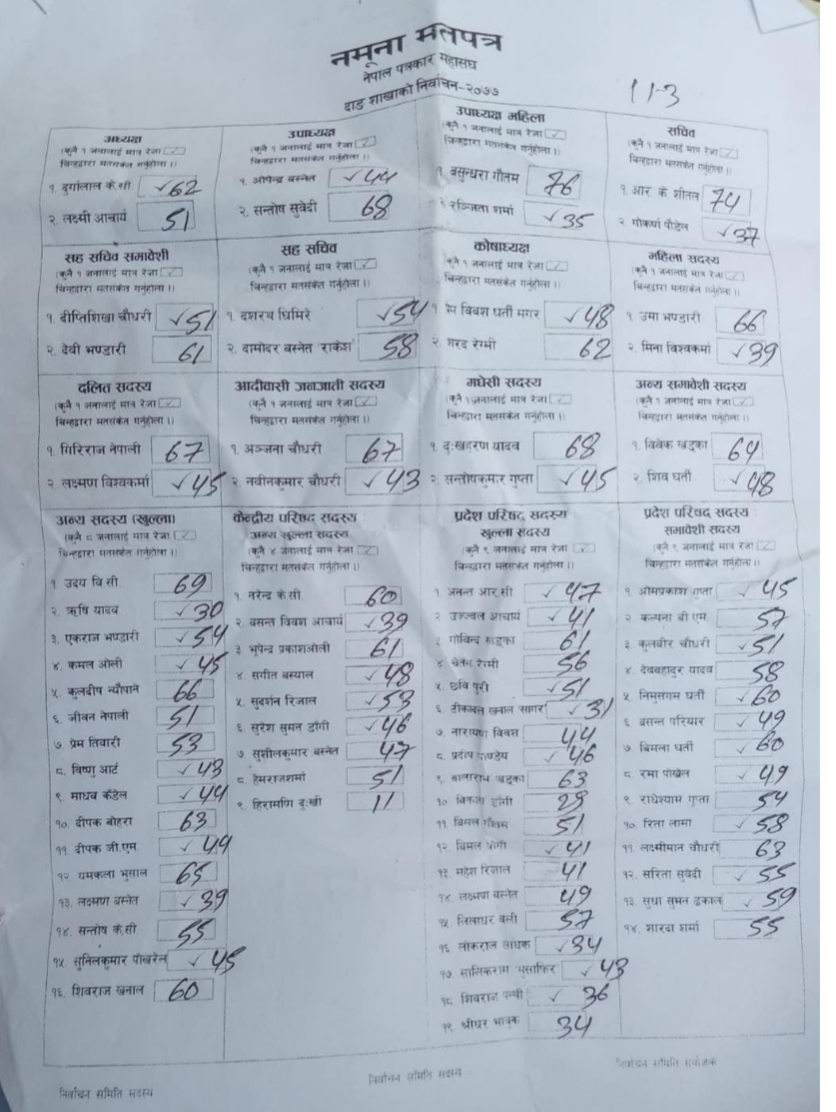 नमूना मतपत्र
नेपाल पत्रकार महासंघ
दाङ शाखाको निर्वाचन-२०७७
113
अध्यक्ष
(कुनै १ जनालाई मात्र रेजा ✓
चिन्हद्वारा मतसंकेत गर्नुहोला ।)
१. दुर्गालाल के.सी ✓62
२. लक्ष्मी आचार्य 51
उपाध्यक्ष
(कुनै १ जनालाई मात्र रेजा ✓
चिन्हद्वारा मतसंकेत गर्नुहोला ।)
१. ओपेन्द्र बस्नेत ✓44
२. सन्तोष सुवेदी 68
उपाध्यक्ष महिला
(कुनै १ जनालाई मात्र रेजा ✓
चिन्हद्वारा मतसंकेत गर्नुहोला ।)
१. बसुन्धरा गौतम 76
२ रञ्जिता शर्मा ✓35
सचिव
(कुनै १ जनालाई मात्र रेजा ✓
चिन्हद्वारा मतसंकेत गर्नुहोला ।)
१. आर के शीतल 74
२ गोकर्ण पौडेल ✓37
सह सचिव समावेशी
(कुनै १ जनालाई मात्र रेजा ✓
चिन्हद्वारा मतसंकेत गर्नुहोला ।)
१. दीप्तिशिखा चौधरी ✓51
२. देवी भण्डारी 61
सह सचिव
(कुनै १ जनालाई मात्र रेजा ✓
चिन्हद्वारा मतसंकेत गर्नुहोला ।)
१ दशरथ घिमिरे ✓54
२. दामोदर बस्नेत 'राकेश' 58
कोषाध्यक्ष
(कुनै १ जनालाई मात्र रेजा ✓
चिन्हद्वारा मतसंकेत गर्नुहोला ।)
१ प्रेम बिवश घर्ती मगर ✓48
२ शरद रेग्मी 62
महिला सदस्य
(कुनै १ जनालाई मात्र रेजा ✓
चिन्हद्वारा मतसंकेत गर्नुहोला ।)
१. उमा भण्डारी 66
२. मिना विश्वकर्मा ✓39
दलित सदस्य
(कुनै १ जनालाई मात्र रेजा ✓
चिन्हद्वारा मतसंकेत गर्नुहोला ।)
१. गिरिराज नेपाली 67
२ लक्ष्मण विश्वकर्मा ✓45
आदीवासी जनजाती सदस्य
(कुनै १ जनालाई मात्र रेजा ✓
चिन्हद्वारा मतसंकेत गर्नुहोला ।)
१. अञ्जना चौधरी 67
२ नवीनकुमार चौधरी ✓43
मधेसी सदस्य
(कुनै १ जनालाई मात्र रेजा ✓
चिन्हद्वारा मतसंकेत गर्नुहोला ।)
१ दुःखहरण यादव 68
२ सन्तोषकुमार गुप्ता ✓45
अन्य समावेशी सदस्य
(कुनै १ जनालाई मात्र रेजा ✓
चिन्हद्वारा मतसंकेत गर्नुहोला ।)
१. विवेक खड्का 64
२. शिव घर्ती ✓48
अन्य सदस्य (खुल्ला)
(कुनै ८ जनालाई मात्र रेजा ✓
चिन्हद्वारा मतसंकेत गर्नुहोला ।)
१ उदय वि.सी 69
२. ऋषि यादव ✓30
३. एकराज भण्डारी ✓54
४. कमल ओली ✓45
५ कुलदीप न्यौपाने 66
६. जीवन नेपाली 51
७. प्रेम तिवारी 53
८. विष्णु आर्ट ✓43
९. माधव कँडेल ✓44
१०. दीपक बोहरा 63
११. दीपक जी.एम. ✓49
१२ यमकला भुसाल 65
१३. लक्ष्मण बस्नेत ✓39
१४. सन्तोष के.सी 55
१५. सुनिलकुमार पोखरेल ✓45
१६. शिवराज खनाल 60
केन्द्रीय परिषद सदस्य
अन्य खुल्ला सदस्य
(कुनै ४ जनालाई मात्र रेजा ✓
चिन्हद्वारा मतसंकेत गर्नुहोला ।)
१. नरेन्द्र के.सी 60
२ बसन्त विवश आचार्य ✓39
३. भुपेन्द्र प्रकाशओली 61
४. संगीत बस्याल ✓48
५. सुदर्शन रिजाल ✓53
६. सुरेश सुमन डाँगी ✓46
७ सुशीलकुमार बस्नेत 47
८ हेमराजशर्मा 51
९. हिरामणि दुःखी 11
प्रदेश परिषद सदस्य
खुल्ला सदस्य
(कुनै ९ जनालाई मात्र रेजा ✓
चिन्हद्वारा मतसंकेत गर्नुहोला ।)
१ अनन्त आर.सी ✓47
२ उज्ज्वल आचार्य ✓41
३ गोविन्द खड्का 61
४ चेतन रेग्मी 56
५. छवि पुरी ✓51
६. टीकाबल खनाल सागर ✓31
७. नारायण विवस 44
८. प्रदीप पाण्डेय ✓46
९. बालाराम खड्का 63
१० विकास डाँगी 29
११ बिमल गौतम 51
१२ बिमल डाँगी ✓41
१३ महेश रिजाल 41
१४. लक्ष्मण बस्नेत 49
१५ लिलाधर वली 57
१६ लोकराज साधक ✓34
१७. सालिकराम मुसाफिर ✓43
१८ शिवराज ✓36
१९ श्रीधर भावुक 34
प्रदेश परिषद सदस्य
समावेशी सदस्य
(कुनै ९ जनालाई मात्र रेजा ✓
चिन्हद्वारा मतसंकेत गर्नुहोला ।)
१. ओमप्रकाश गुप्ता ✓45
२. कल्पना बी.एम. 57
३ कुलबीर चौधरी ✓51
४. देवबहादुर यादव 58
५ निमुसंगम घर्ती ✓60
६ बसन्त परियार ✓49
७. बिमला घर्ती ✓60
८. रमा पोखेल ✓49
९ राधेश्याम गुप्ता 54
१०. रिता लामा ✓58
११. लक्ष्मीमान चौधरी 63
१२. सरिता सुवेदी ✓55
१३. सुधा सुमन ढकाल ✓59
१४. शारदा शर्मा 55
निर्वाचन समिति सदस्य
निर्वाचन समिति सदस्य
निर्वाचन समिति संयोजक